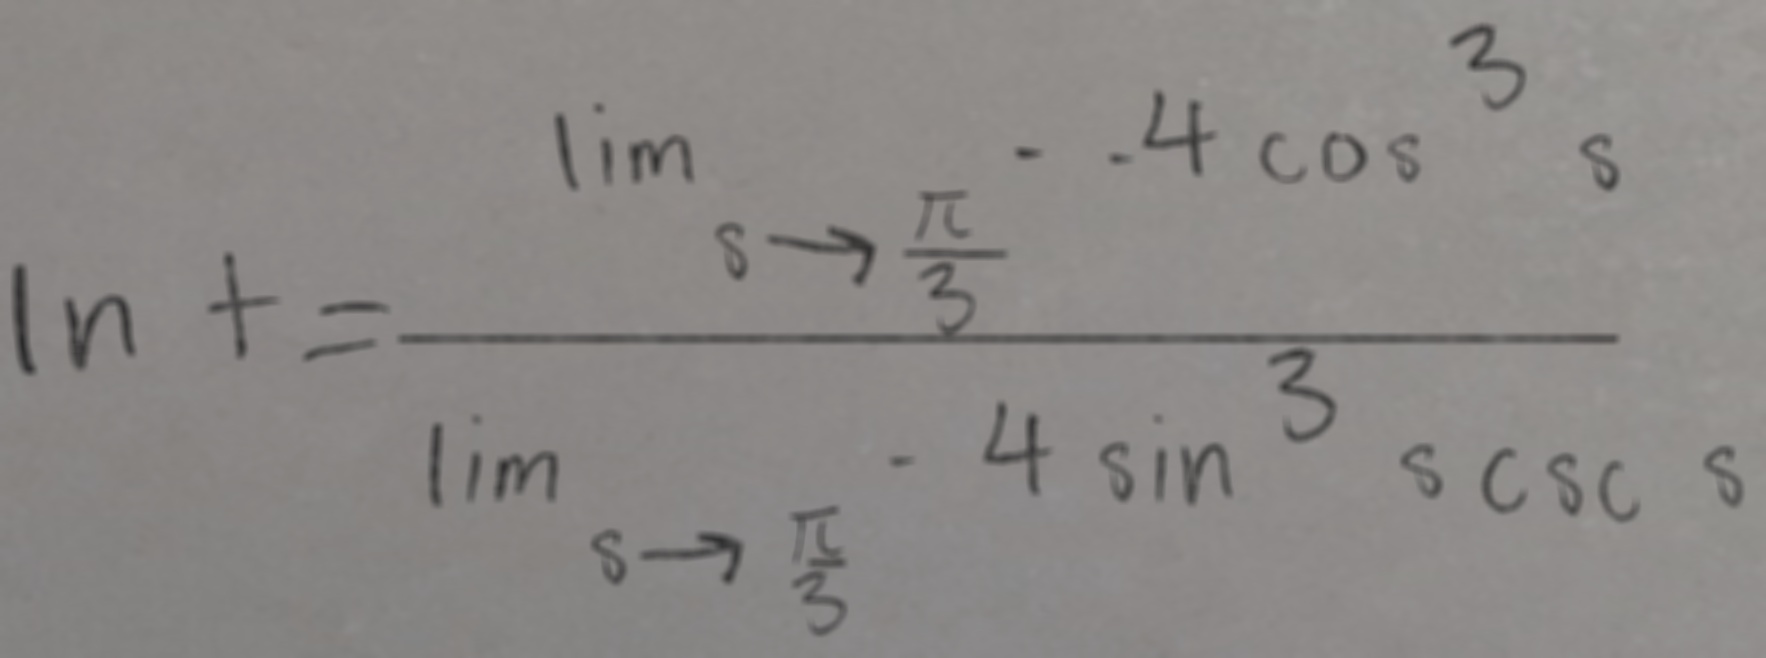 ln t = \frac{\lim_{s \to \frac{\pi}{3}} - -4 \cos^3 s}{\lim_{s \to \frac{\pi}{3}} -4 \sin^3 s \csc s}